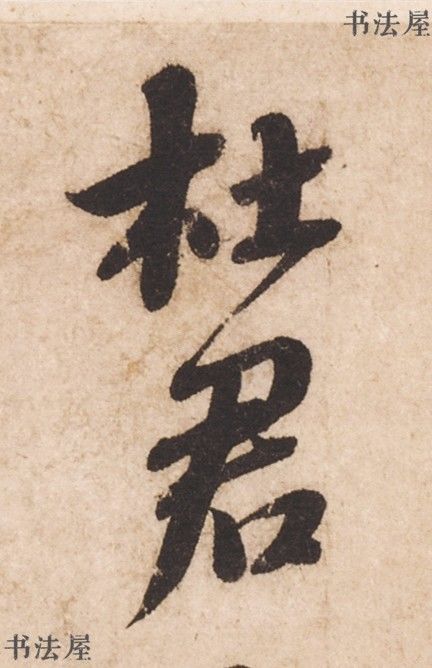 书法屋
杜君
书法屋